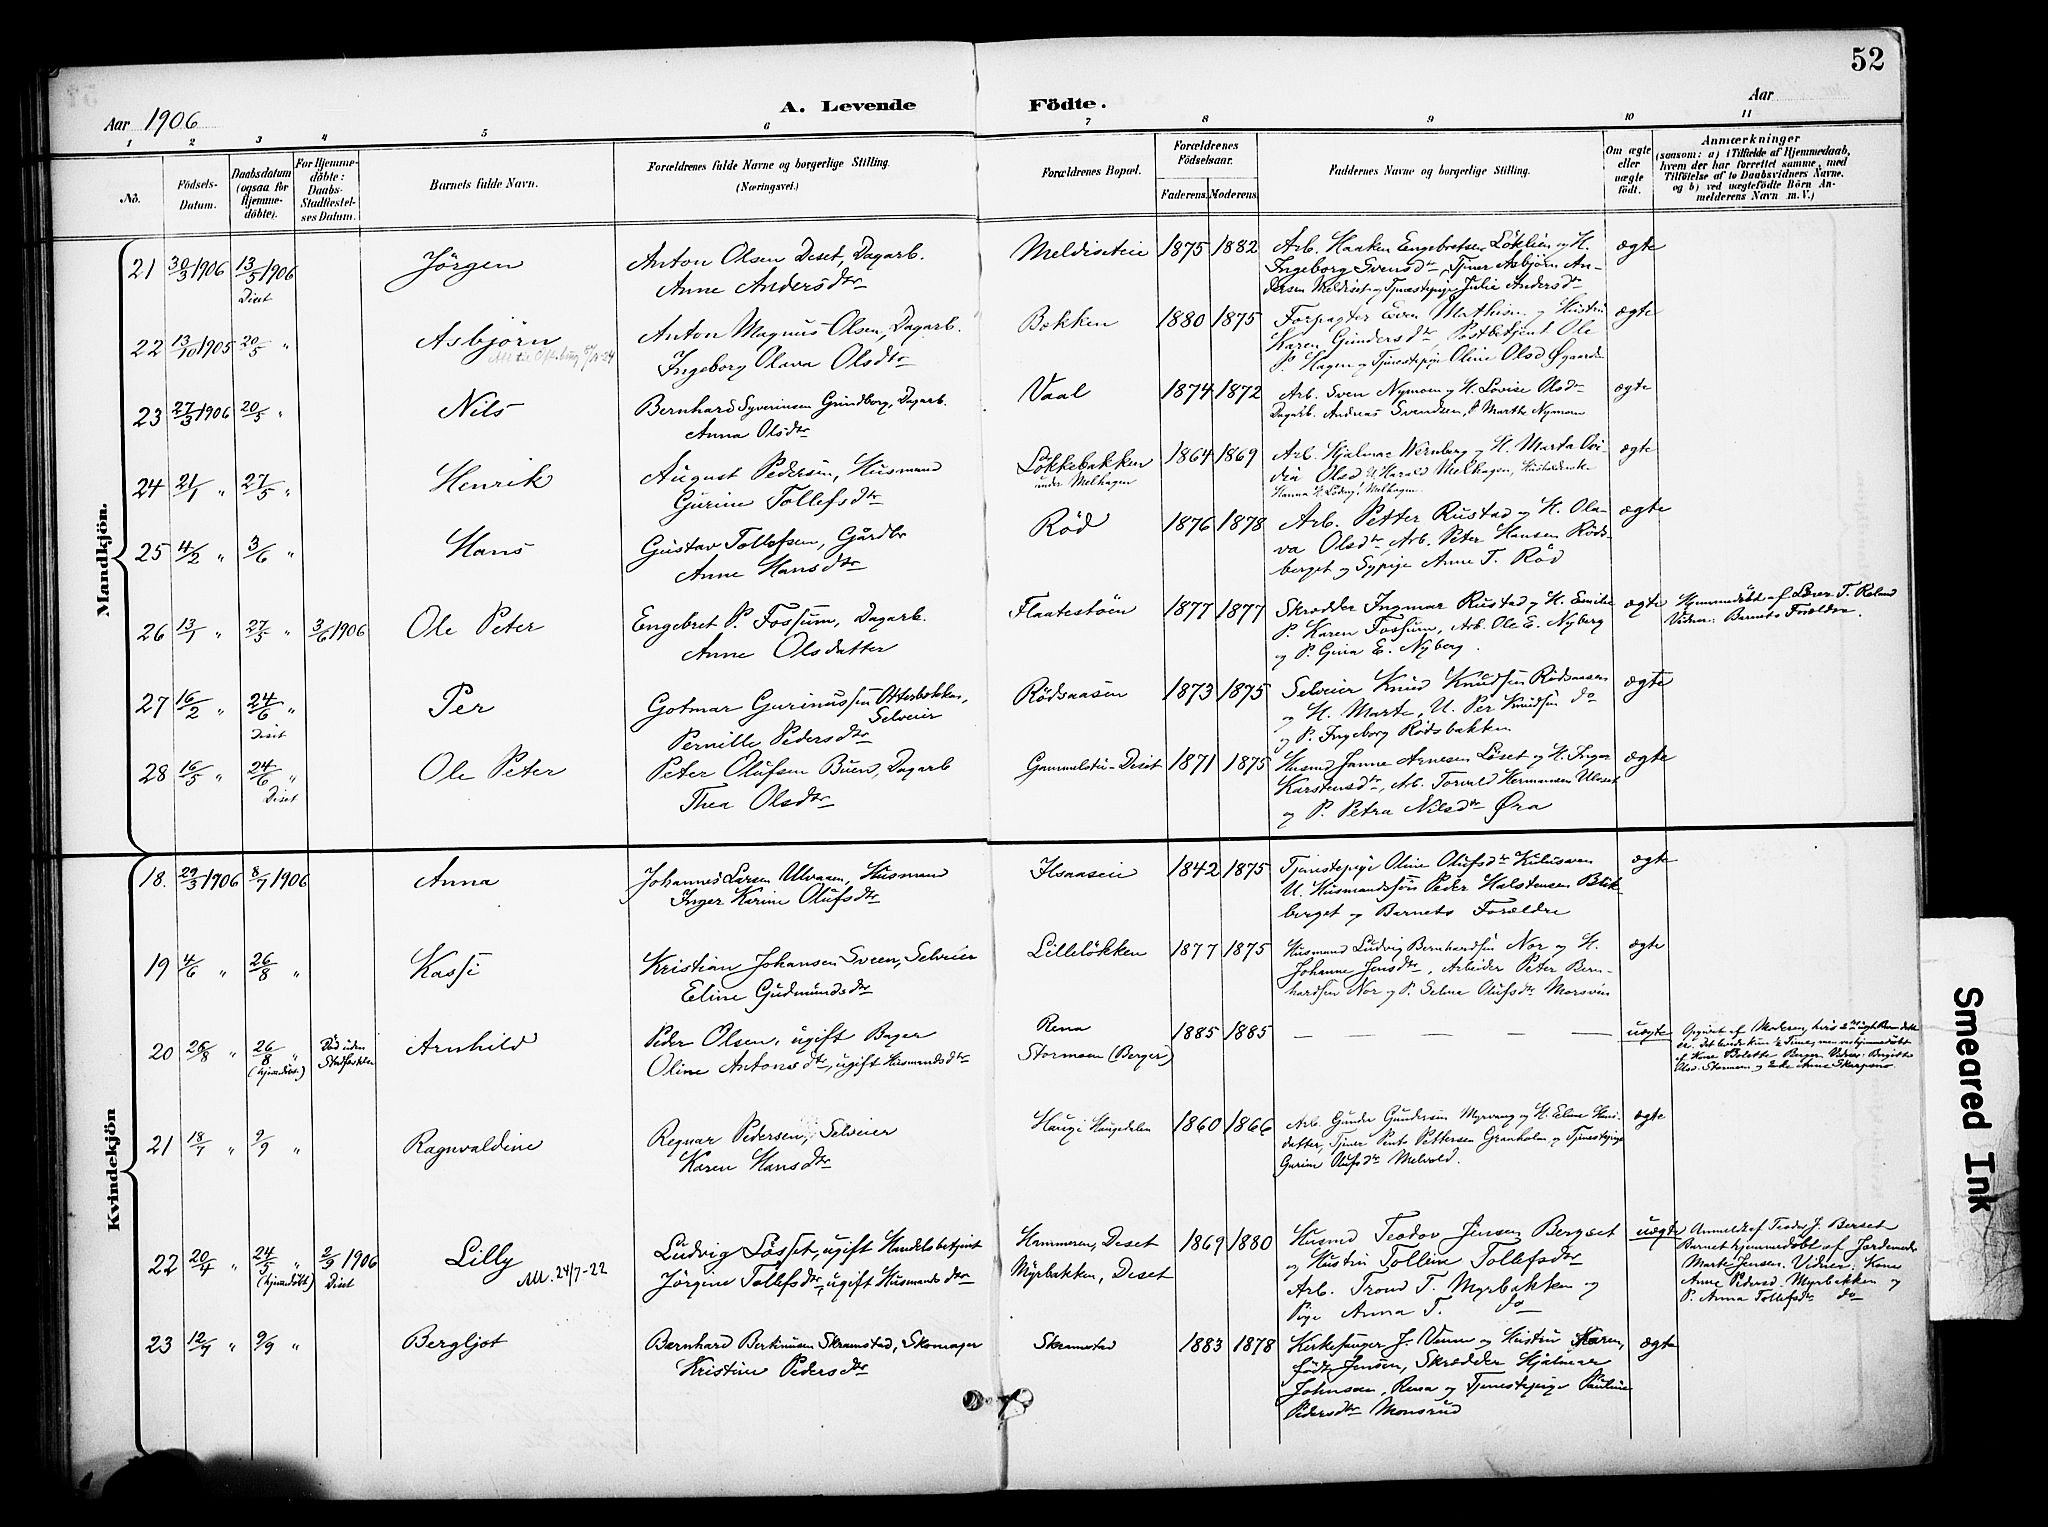 52
A. Levende Födte.
Aar 1906
Aar
1 2 3 4 5 6 7 8 9 10 11
No.
Födsels-Datum.
Daabsdatum (ogsaa for Hjemmedöbte).
For Hjemmedöbte: Daabs-Stadfæstelses Datum.
Barnets fulde Navn.
Forældrenes fulde Navne og borgerlige Stilling. (Næringsvei.)
Forældrenes Bopæl.
Forældrenes Födselsaar.
Faderens. Moderens.
Faddernes Navne og borgerlige Stilling.
Om ægte eller uægte födt.
Anmærkninger
(saasom: a) i Tilfælde af Hjemmedaab, hvem der har forrettet samme, med Tilföielse af to Daabsvidners Navne, og b) ved uægtefödte Börn Anmelderens Navn m. V.)
Mandkjön.
21 30/3 1906 13/5 1906 Diset Jörgen
Anton Olsen Deset, Dagarb.
Anne Andersdtr
Meldiseteie 1875 1882
Arb. Haaken Engebretsen Löklien og H.
Ingeborg Svensdtr, Tjener Asbjörn An-
dersen Meldiset og Tjenestepige Julie Andersdtr
ægte
22 13/10 1905 20/5 " Asbjörn
Anton Magnus Olsen, Dagarb.
Ingeborg Olava Olsdtr
Bekken 1880 1875
Forpagter Even Mathisen og Hustru
Karen Gundersdtr, Postbetjent Ole
P. Hagen og Tjenestepige Oline Olsd Øgaard
ægte
23 27/3 1906 20/5 " Nils
Bernhard Syverinsen Grindberg, Dagarb.
Anna Olsdtr
Vaal 1874 1872
Arb. Sven Nymoen og H. Lovise Olsdtr
Dagarb. Andreas Svendsen, P. Marthe Nymoen
ægte
24 21/1 " 27/5 " Henrik
August Pedersen, Husmand
Gurine Tollefsdtr
Løkkebakken
under Melhagen
1864 1869
Arb. Hjalmar Wernberg og H. Marta Ovi-
dia Olsd U. Harald Melhagen,
ægte
25 4/2 " 3/6 " Hans
Gustav Tollefsen, Gårdbr
Anne Hansdtr
Rød 1876 1878
Arb. Petter Rustad og H. Ola-
va Olsdtr, Arb. Peter Hansen Röds-
berget og Sypige Anne T. Röd
ægte
26 13/1 " 27/5 " 3/6 1906 Ole Peter
Engebret P. Fossum, Dagarb.
Anne Olsdatter
Flaatestöen 1877 1877
Skrædder Ingmar Rustad og H. Emilie
P. Karen Fossum, Arb. Ole E. Nyberg
og P. Gina E. Nyberg.
ægte
Hjemmedöbt af Lærer T. Roland
Vidner: Barnets Forældre.
27 16/2 " 24/6 " Diset Per
Gotmar Gurinussen Ofterbekken,
Selveier
Pernille Pedersdtr
Rödsaasen 1873 1875
Selveier Knud Knudsen Rödsaasen
og H. Marte, U. Per Knudsen do
og P. Ingeborg Rödsbakken
ægte
28 16/5 " 24/6 " Diset Ole Peter
Peter Olufsen Buen, Dagarb
Thea Olsdtr
Gammelstu-Diset 1871 1875
Husmd Janne Arnesen Löset og H. Inga
Karstensdtr, Arb. Torvald Hermansen Ulvset
og P. Petra Nilsdtr Øra
ægte
Kvindekjön
18. 29/3 1906 8/7 1906 Anna
Johannes Larsen Ulvaaen, Husmand
Inger Karine Olufsdtr
Ilsaaseie 1842 1875
Tjenestepige Oline Olufsdtr
U. Husmandssön Peder Halstensen Blik-
berget og Barnets Forældre
ægte
19 4/6 " 26/8 " Kassi
Kristian Johansen Sveen, Selveier
Eline Gudmundsdtr
Lillelökken 1877 1875
Husmand Ludvig Bernhardsen Nor og H.
Johanne Jensdtr, Arbeider Peter Bern-
hardsen Nor og P. Selma Olufsdtr Morsven
ægte
20 26/8 " 26/8 " (hjemdöbt.) Död uden Stadfæstelse Arnhild
Peder Olsen, ugift Bager
Oline Antonsdtr, ugift Husmandsdtr
Rena
Stormoen (Berger)
1885 1885
— — — — —
uægte
Opgivet af Moderen, hvis 2det uægte Barn dette
er. Det levede kun ½ Time, men var hjemmedöbt
af Kone Bolette Bergen Vidner: Birgitte
Olsd. Stormoen og Enke Anne Skarpsno
21 18/7 " 9/9 " Ragnvaldine
Regnar Pedersen, Selveier
Karen Hansdtr
Haugi Haugedalen 1860 1866
Arb. Gunder Gundersen Myrvang og H. Eline Hans-
datter, Tjener Pettersen Granholm og Tjenestepige
Gurine Olufsdtr Melvold.
ægte
22 20/4 " 24/5 " (hjemdöbt) 2/9 1906 Diset Lilly
Att. 24/7-22
Ludvig Lösset, ugift Handelsbetjent
Jörgine Tollefsdtr, ugift Husmandsdtr
Hammeren, Deset
Myrbakken, Deset
1869 1880
Husmd Teodor Jensen Bergset
og Hustru Tolline Tollefsdtr
Arb. Trond T. Myrbakken og
Pige Anna T. do
uægte
Anmeldt af Teodor J. Berset
Barnet hjemmedöbt af Jordemoder
Marte Jensen. Vidner: Kone
Anne Pedersd. Myrbakken og
P. Anna Tollefsdtr do
23 12/7 " 9/9 " Bergljot
Bernhard Bertinusen Skramstad, Skomager
Kristine Pedersdtr
Skramstad 1883 1878
Kirkesanger J. Venne og Hustru Karen,
født Jensen, Skrædder Hjalmar
Johnsen, Rena og Tjenestepige Pauline
Pedersdtr Monsrud
ægte
Smeared Ink